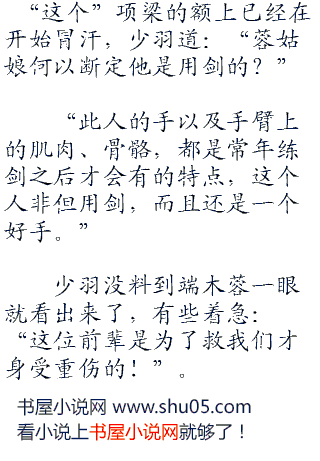 “这个”项梁的额上已经在
开始冒汗，少羽道：“蓉姑
娘何以断定他是用剑的？”
“此人的手以及手臂上
的肌肉、骨骼，都是常年练
剑之后才会有的特点，这个
人非但用剑，而且还是一个
好手。”
少羽没料到端木蓉一眼
就看出来了，有些着急：
“这位前辈是为了救我们才
身受重伤的！”。
书屋小说网 www.shu05.com
看小说上书屋小说网就够了！